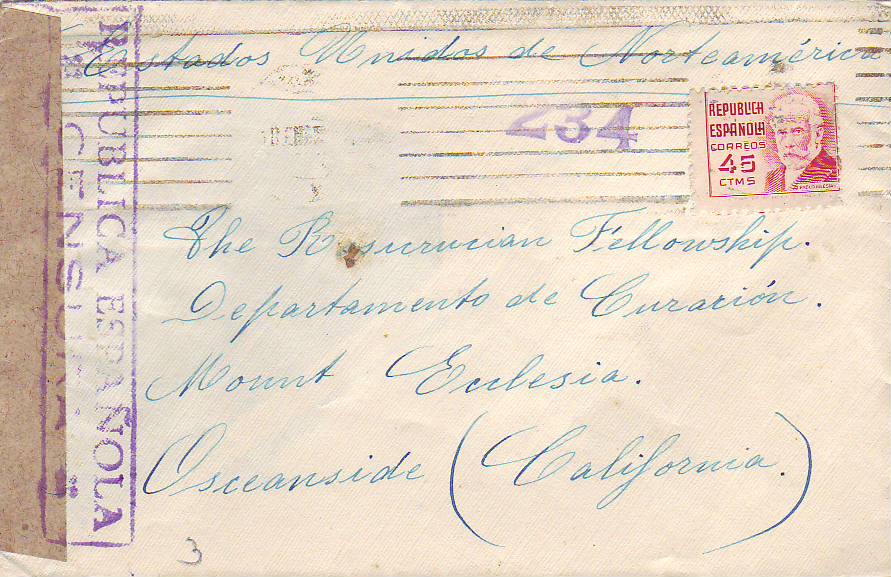 Estados Unidos de Norteamérica
234
REPUBLICA
ESPAÑOLA
CORREOS
45
CTMS
PABLO IGLESIAS
The Rosicrucian Fellowship.
Departamento de Curación.
Mount Ecclesia.
Osceanside (California.)
3
REPUBLICA ESPAÑOLA
CENSURA